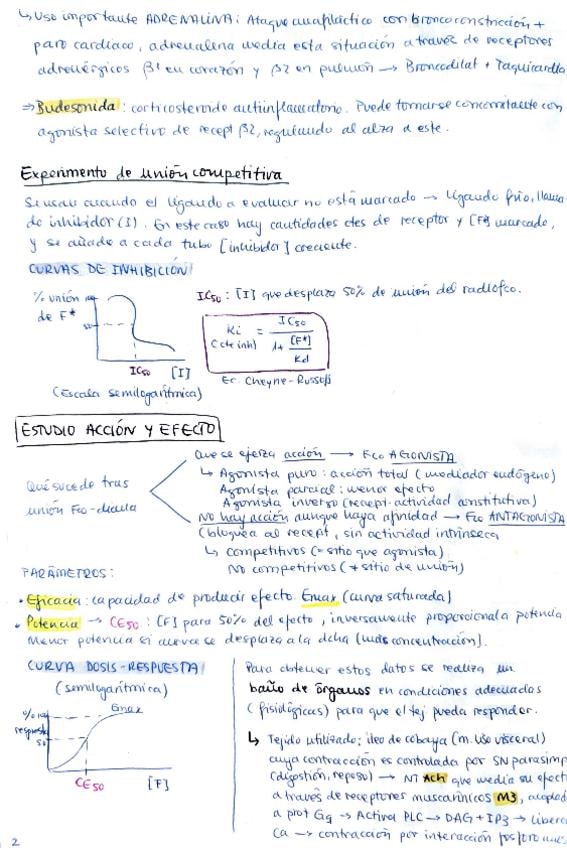 ↳ Uso importante ADRENALINA: Ataque anafiláctico con broncoconstricción +
paro cardiaco, adrenalina media esta situación a través de receptores
adrenérgicos β1 en corazón y β2 en pulmón → Broncodilat + Taquicardia
⇒ Budesonida: corticosteroide antiinflamatorio. Puede tomarse concomitante con
agonista selectivo de recept β2, regulando al alza a este.
Experimento de unión competitiva
Se usan cuando el ligando a evaluar no está marcado → ligando frío, llama
do inhibidor (I). En este caso hay cantidades ctes de receptor y [F*] marcado,
y se añade a cada tubo [inhibidor] creciente.
CURVAS DE INHIBICIÓN
% unión
de F*
50
IC50 [I]
(Escala semilogarítmica)
IC50: [I] que desplaza 50% de unión del radiofco.
Ki = IC50 / 1 + [F*]/Kd
(cte inh)
Ec. Cheyne-Russoff
ESTUDIO ACCIÓN Y EFECTO
Qué sucede tras
unión Fco-diana
Que se ejerza acción → Fco AGONISTA
↳ Agonista puro: acción total (mediador endógeno)
Agonista parcial: menor efecto
Agonista inverso (recept. actividad constitutiva)
No hay acción aunque haya afinidad → Fco ANTAGONISTA
(bloquea al recept, sin actividad intrínseca
↳ competitivos (= sitio que agonista)
No competitivos (≠ sitio de unión)
PARÁMETROS:
• Eficacia: capacidad de producir efecto. Emax (curva saturada)
• Potencia → CE50: [F] para 50% del efecto, inversamente proporcional a potencia
Menor potencia si curva se desplaza a la dcha (más concentración).
CURVA DOSIS-RESPUESTA
(semilogarítmica)
Emax
respuesta
50
CE50 [F]
Para obtener estos datos se realiza un
baño de órganos en condiciones adecuadas
(fisiológicas) para que el tej pueda responder.
↳ Tejido utilizado: íleo de cobaya (m. liso visceral)
cuya contracción es controlada por SN parasimp
(digestión, reposo) → NT Ach que media su efect
a través de receptores muscarínicos M3, acoplad
a prot Gq → Activa PLC → DAG + IP3 → libera
Ca → contracción por interacción
2